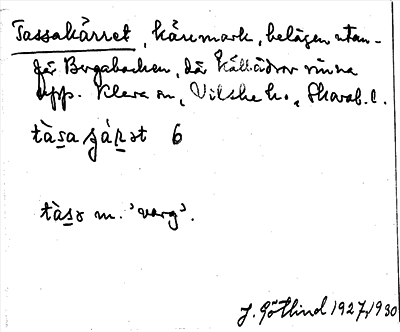 Tassakärret, kärrmark, belägen utan-
för Bergabacken, där källådror rinna
upp. Kleva sn, Vilske h., Skarab. l.
tàs̲a ʒár̲ət 6
tàs̲ə m. 'varg'.
J. Götlind 1927, 1930